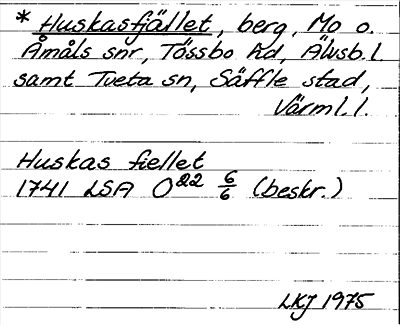 * Huskasfjället, berg, Mo o.
Åmåls snr, Tössbo hd, Älvsb.l.
samt Tveta sn, Säffle stad,
Värml.l.
Huskas fiellet
1741 LSA O²² 6/6 (beskr.)
LKJ 1975